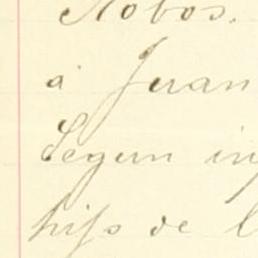 Robos.
á Juan
Segun in
hijo de l